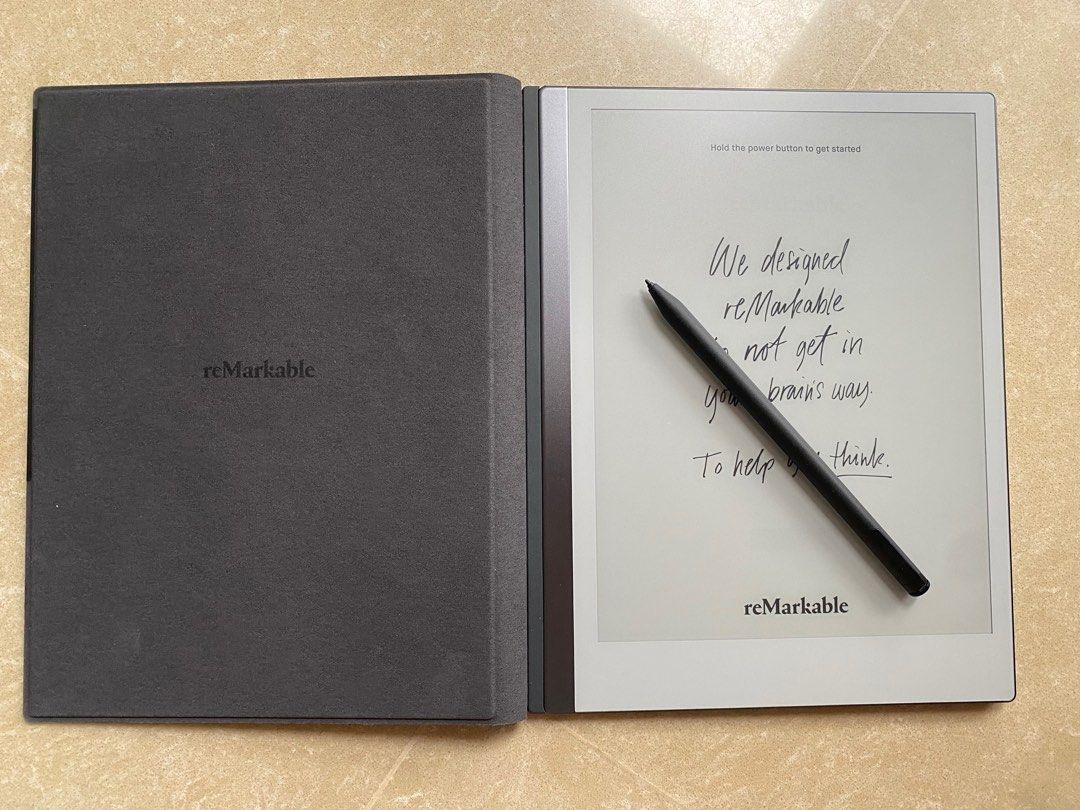 reMarkable
Hold the power button to get started
We designed
reMarkable
not get in
brain's way.
To help think.
reMarkable